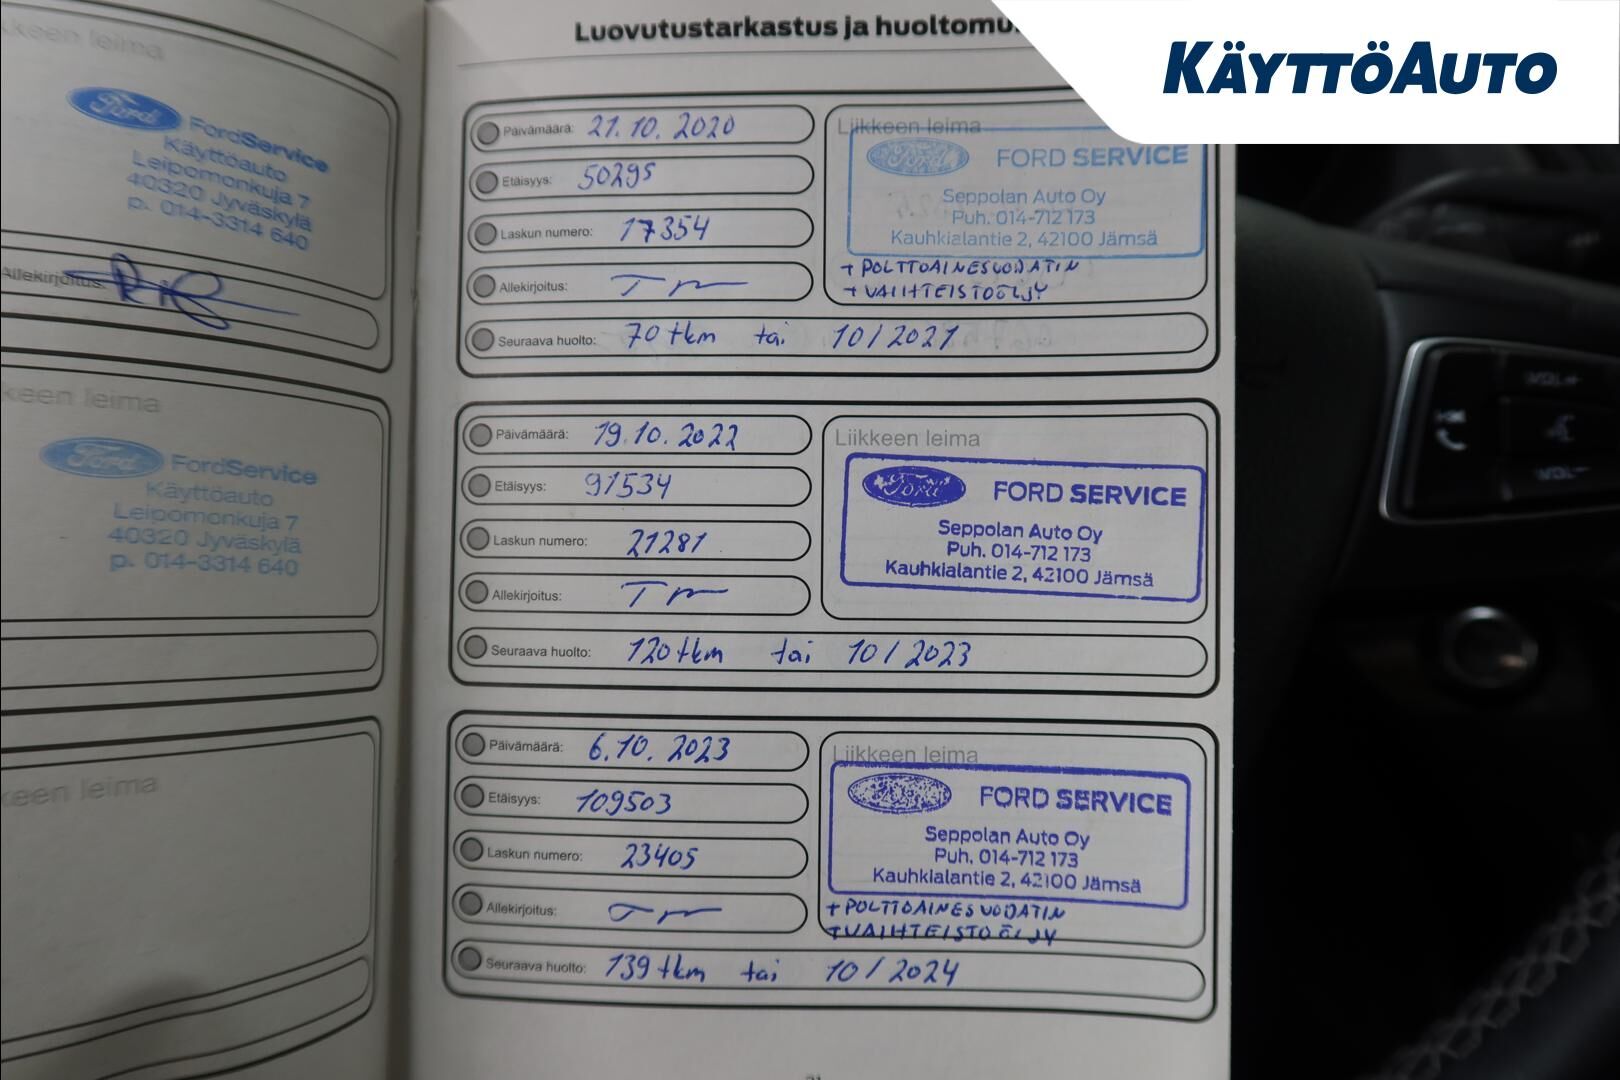 KÄYTTÖAUTO
keen leima
Ford FordService
Käyttöauto
Leipomonkuja 7
40320 Jyväskylä
p. 014-3314 640
Allekirjoitus:
keen leima
Ford FordService
Käyttöauto
Leipomonkuja 7
40320 Jyväskylä
p. 014-3314 640
keen leima
Luovutustarkastus ja huoltomu
Päivämäärä: 21.10.2020
Etäisyys: 50295
Laskun numero: 17354
Allekirjoitus:
Liikkeen leima
Ford FORD SERVICE
Seppolan Auto Oy
Puh. 014-712 173
Kauhkialantie 2, 42100 Jämsä
+ POLTTOAINESUODATIN
+ VAIHTEISTOÖLJY
Seuraava huolto: 70 tkm tai 10/2021
Päivämäärä: 19.10.2022
Etäisyys: 91534
Laskun numero: 21281
Allekirjoitus:
Liikkeen leima
Ford FORD SERVICE
Seppolan Auto Oy
Puh. 014-712 173
Kauhkialantie 2, 42100 Jämsä
Seuraava huolto: 120 tkm tai 10/2023
Päivämäärä: 6.10.2023
Etäisyys: 109503
Laskun numero: 23405
Allekirjoitus:
Liikkeen leima
FORD SERVICE
Seppolan Auto Oy
Puh. 014-712 173
Kauhkialantie 2, 42100 Jämsä
+ POLTTOAINESUODATIN
+ VAIHTEISTOÖLJY
Seuraava huolto: 139 tkm tai 10/2024
VOL+
VOL-